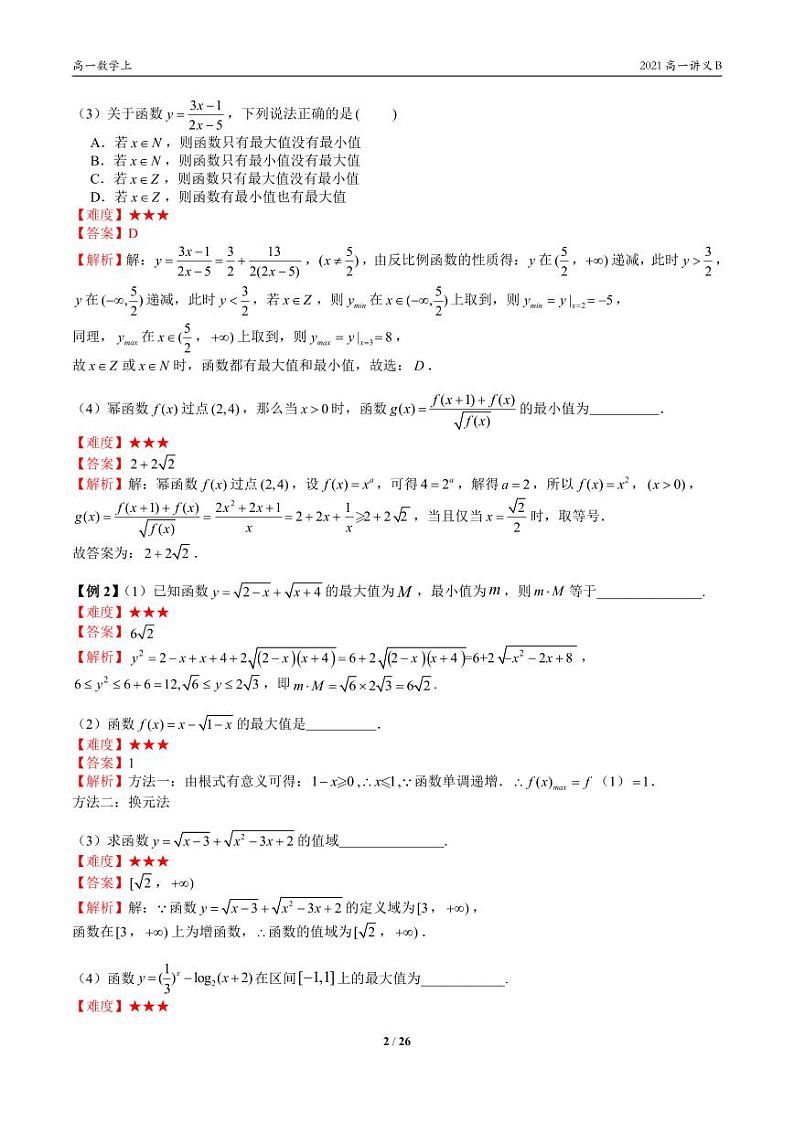 高一数学上 2021 高一讲义 B
（3）关于函数 y = (3x−1)/(2x−5)，下列说法正确的是 (　　)
A．若 x∈N，则函数只有最大值没有最小值
B．若 x∈N，则函数只有最小值没有最大值
C．若 x∈Z，则函数只有最大值没有最小值
D．若 x∈Z，则函数有最小值也有最大值
【难度】★★★
【答案】D
【解析】解：y = (3x−1)/(2x−5) = 3/2 + 13/(2(2x−5))，(x ≠ 5/2)，由反比例函数的性质得：y 在 (5/2，+∞) 递减，此时 y > 3/2，
y 在 (−∞, 5/2) 递减，此时 y < 3/2，若 x∈Z，则 y_min 在 x∈(−∞, 5/2) 上取到，则 y_min = y|_{x=2} = −5，
同理，y_max 在 x∈(5/2，+∞) 上取到，则 y_max = y|_{x=3} = 8，
故 x∈Z 或 x∈N 时，函数都有最大值和最小值，故选：D．
（4）幂函数 f(x) 过点 (2,4)，那么当 x > 0 时，函数 g(x) = (f(x+1)+f(x))/√f(x) 的最小值为__________．
【难度】★★★
【答案】2+2√2
【解析】解：幂函数 f(x) 过点 (2,4)，设 f(x) = x^a，可得 4 = 2^a，解得 a = 2，所以 f(x) = x²，(x > 0)，
g(x) = (f(x+1)+f(x))/√f(x) = (2x²+2x+1)/x = 2+2x+1/x ⩾ 2+2√2，当且仅当 x = √2/2 时，取等号．
故答案为：2+2√2．
【例 2】（1）已知函数 y = √(2−x) + √(x+4) 的最大值为 M，最小值为 m，则 m·M 等于_______________.
【难度】★★★
【答案】6√2
【解析】y² = 2−x+x+4+2√((2−x)(x+4)) = 6+2√((2−x)(x+4)) =6+2√(−x²−2x+8)，
6 ≤ y² ≤ 6+6 = 12, √6 ≤ y ≤ 2√3，即 m·M = √6×2√3 = 6√2.
（2）函数 f(x) = x − √(1−x) 的最大值是__________．
【难度】★★★
【答案】1
【解析】方法一：由根式有意义可得：1−x⩾0，∴x⩽1，∵函数单调递增．∴f(x)_max = f（1）=1．
方法二：换元法
（3）求函数 y = √(x−3) + √(x²−3x+2) 的值域_______________.
【难度】★★★
【答案】[√2，+∞)
【解析】解：∵函数 y = √(x−3) + √(x²−3x+2) 的定义域为 [3，+∞)，
函数在 [3，+∞) 上为增函数，∴函数的值域为 [√2，+∞)．
（4）函数 y = (1/3)^x − log₂(x+2) 在区间 [−1,1] 上的最大值为____________.
【难度】★★★
2 / 26